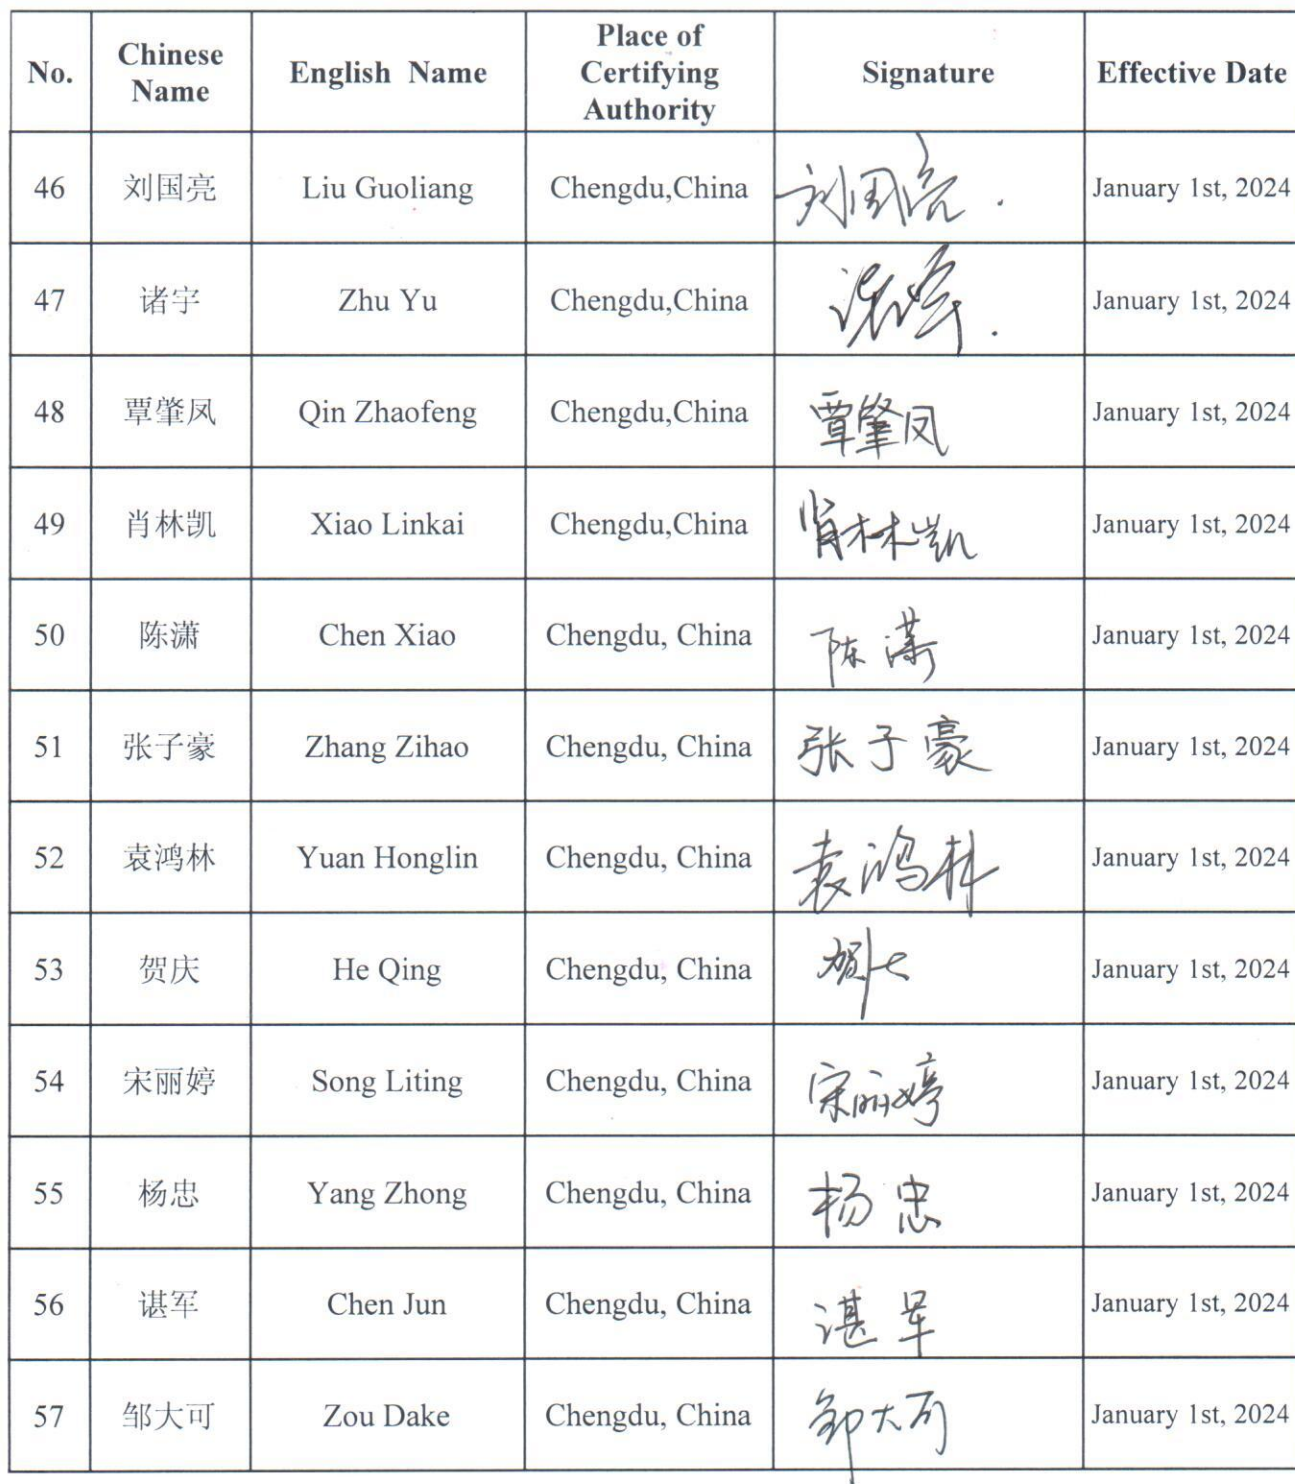 No. Chinese Name English Name Place of Certifying Authority Signature Effective Date
46 刘国亮 Liu Guoliang Chengdu,China 刘国亮 . January 1st, 2024
47 诸宇 Zhu Yu Chengdu,China 诸宇 . January 1st, 2024
48 覃肇凤 Qin Zhaofeng Chengdu,China 覃肇凤 January 1st, 2024
49 肖林凯 Xiao Linkai Chengdu,China 肖林凯 January 1st, 2024
50 陈潇 Chen Xiao Chengdu, China 陈潇 January 1st, 2024
51 张子豪 Zhang Zihao Chengdu, China 张子豪 January 1st, 2024
52 袁鸿林 Yuan Honglin Chengdu, China 袁鸿林 January 1st, 2024
53 贺庆 He Qing Chengdu, China January 1st, 2024
54 宋丽婷 Song Liting Chengdu, China 宋丽婷 January 1st, 2024
55 杨忠 Yang Zhong Chengdu, China 杨忠 January 1st, 2024
56 谌军 Chen Jun Chengdu, China 谌军 January 1st, 2024
57 邹大可 Zou Dake Chengdu, China 邹大可 January 1st, 2024